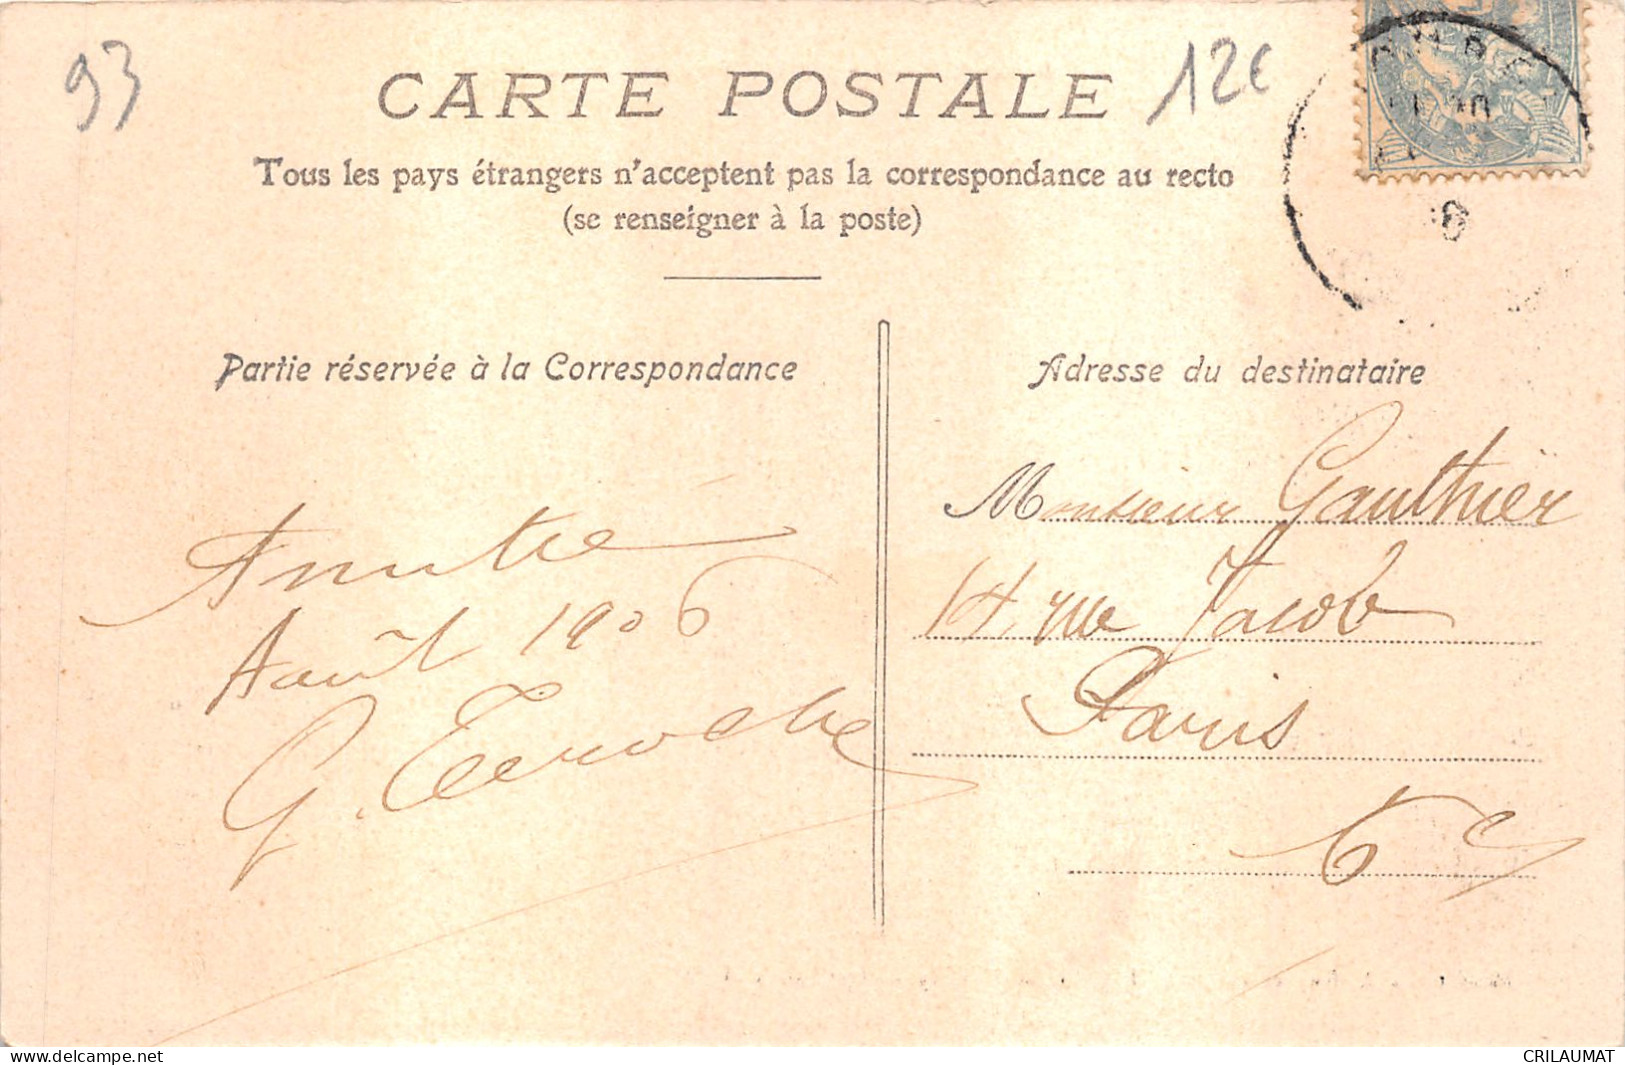 93
12€
CARTE POSTALE
Tous les pays étrangers n'acceptent pas la correspondance au recto
(se renseigner à la poste)
Partie réservée à la Correspondance
Adresse du destinataire
Amitié
Août 1906
G.
Monsieur Gauthier
14, rue Jacob
Paris
CRILAUMAT